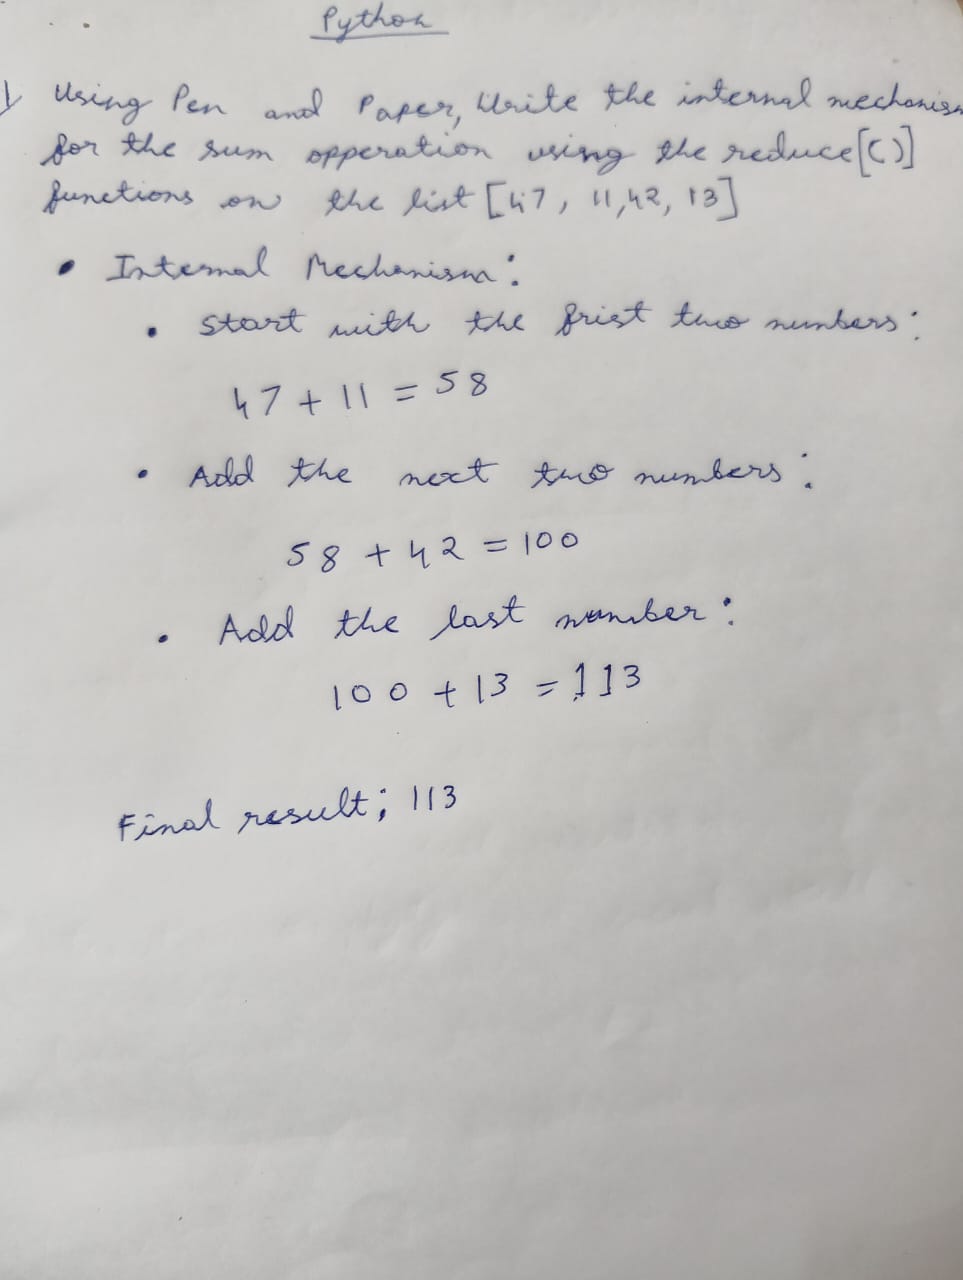 Python
1 Using Pen and Paper, Write the internal mechanism
for the sum opperation using the reduce[()]
functions on the list [47, 11,42, 13]
• Internal Mechanism:
• Start with the frist two numbers:
47 + 11 = 58
• Add the next two numbers:
58 + 42 = 100
• Add the last number:
100 + 13 = 113
Final result; 113